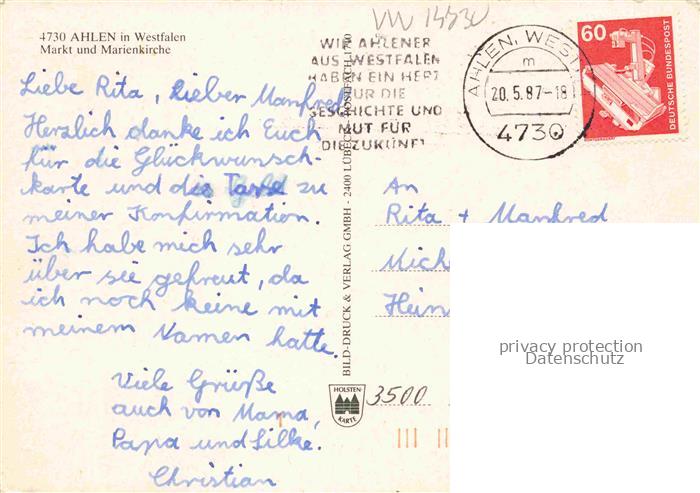 4730 AHLEN in Westfalen
Markt und Marienkirche
Liebe Rita, lieber Manfred
Herzlich danke ich Euch
für die Glückwunsch-
karte und die Tasse zu
meiner Konfirmation.
Ich habe mich sehr
über sie gefreut, da
ich noch keine mit
meinem Namen hatte.
Viele Grüße
auch von Mama,
Papa und Silke.
Christian
BILD-DRUCK & VERLAG GMBH - 2400 LÜBECK
WIR AHLENER
AUS WESTFALEN
HABEN EIN HERZ
FÜR DIE
GESCHICHTE UND
MUT FÜR
DIE ZUKUNFT
AHLEN, WESTF
m
20.5.87-18
4730
60
DEUTSCHE BUNDESPOST
An
Rita + Manfred
Mich
Hein
3500
HOLSTEN-
KARTE
privacy protection
Datenschutz